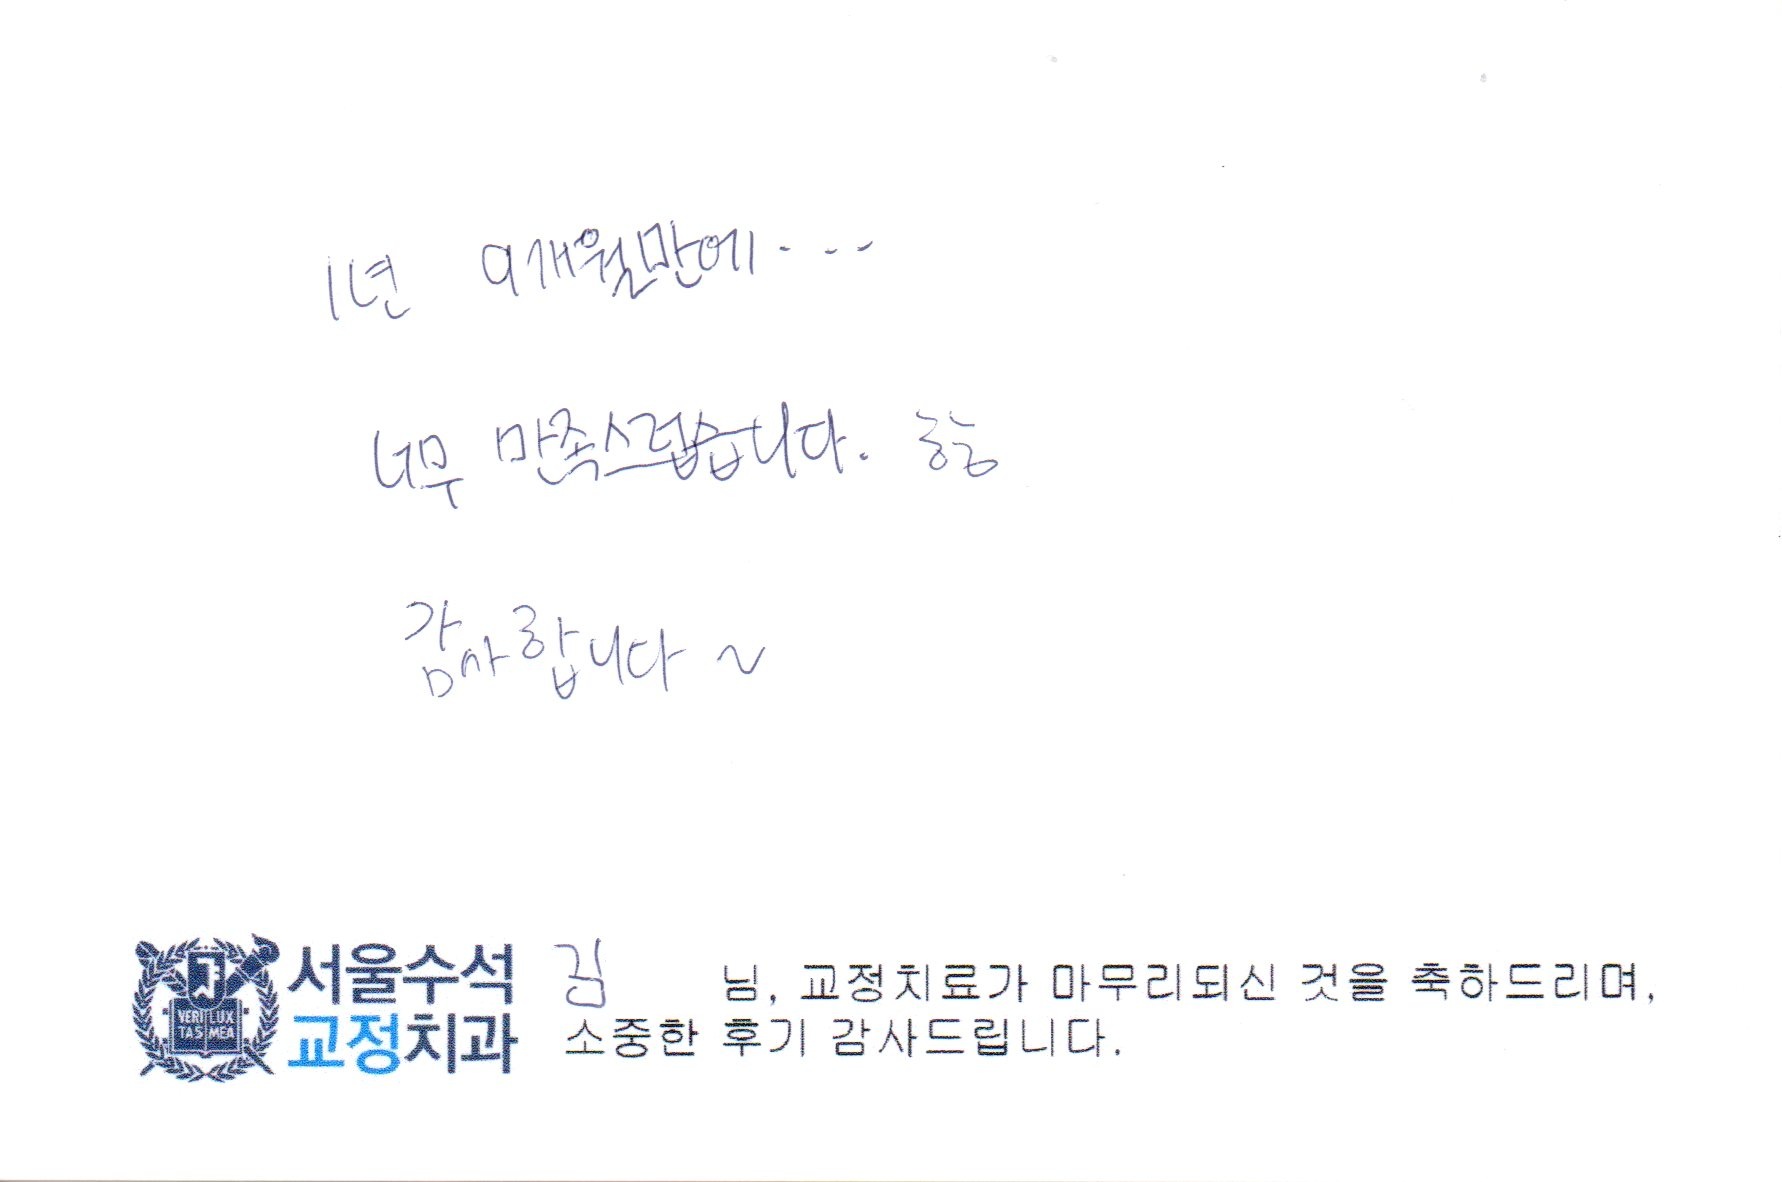 1년 9개월만에...
너무 만족스럽습니다. ㅎㅎ
감사합니다 ~
서울수석
교정치과
VERI LUX
TAS MEA
김 님, 교정치료가 마무리되신 것을 축하드리며,
소중한 후기 감사드립니다.